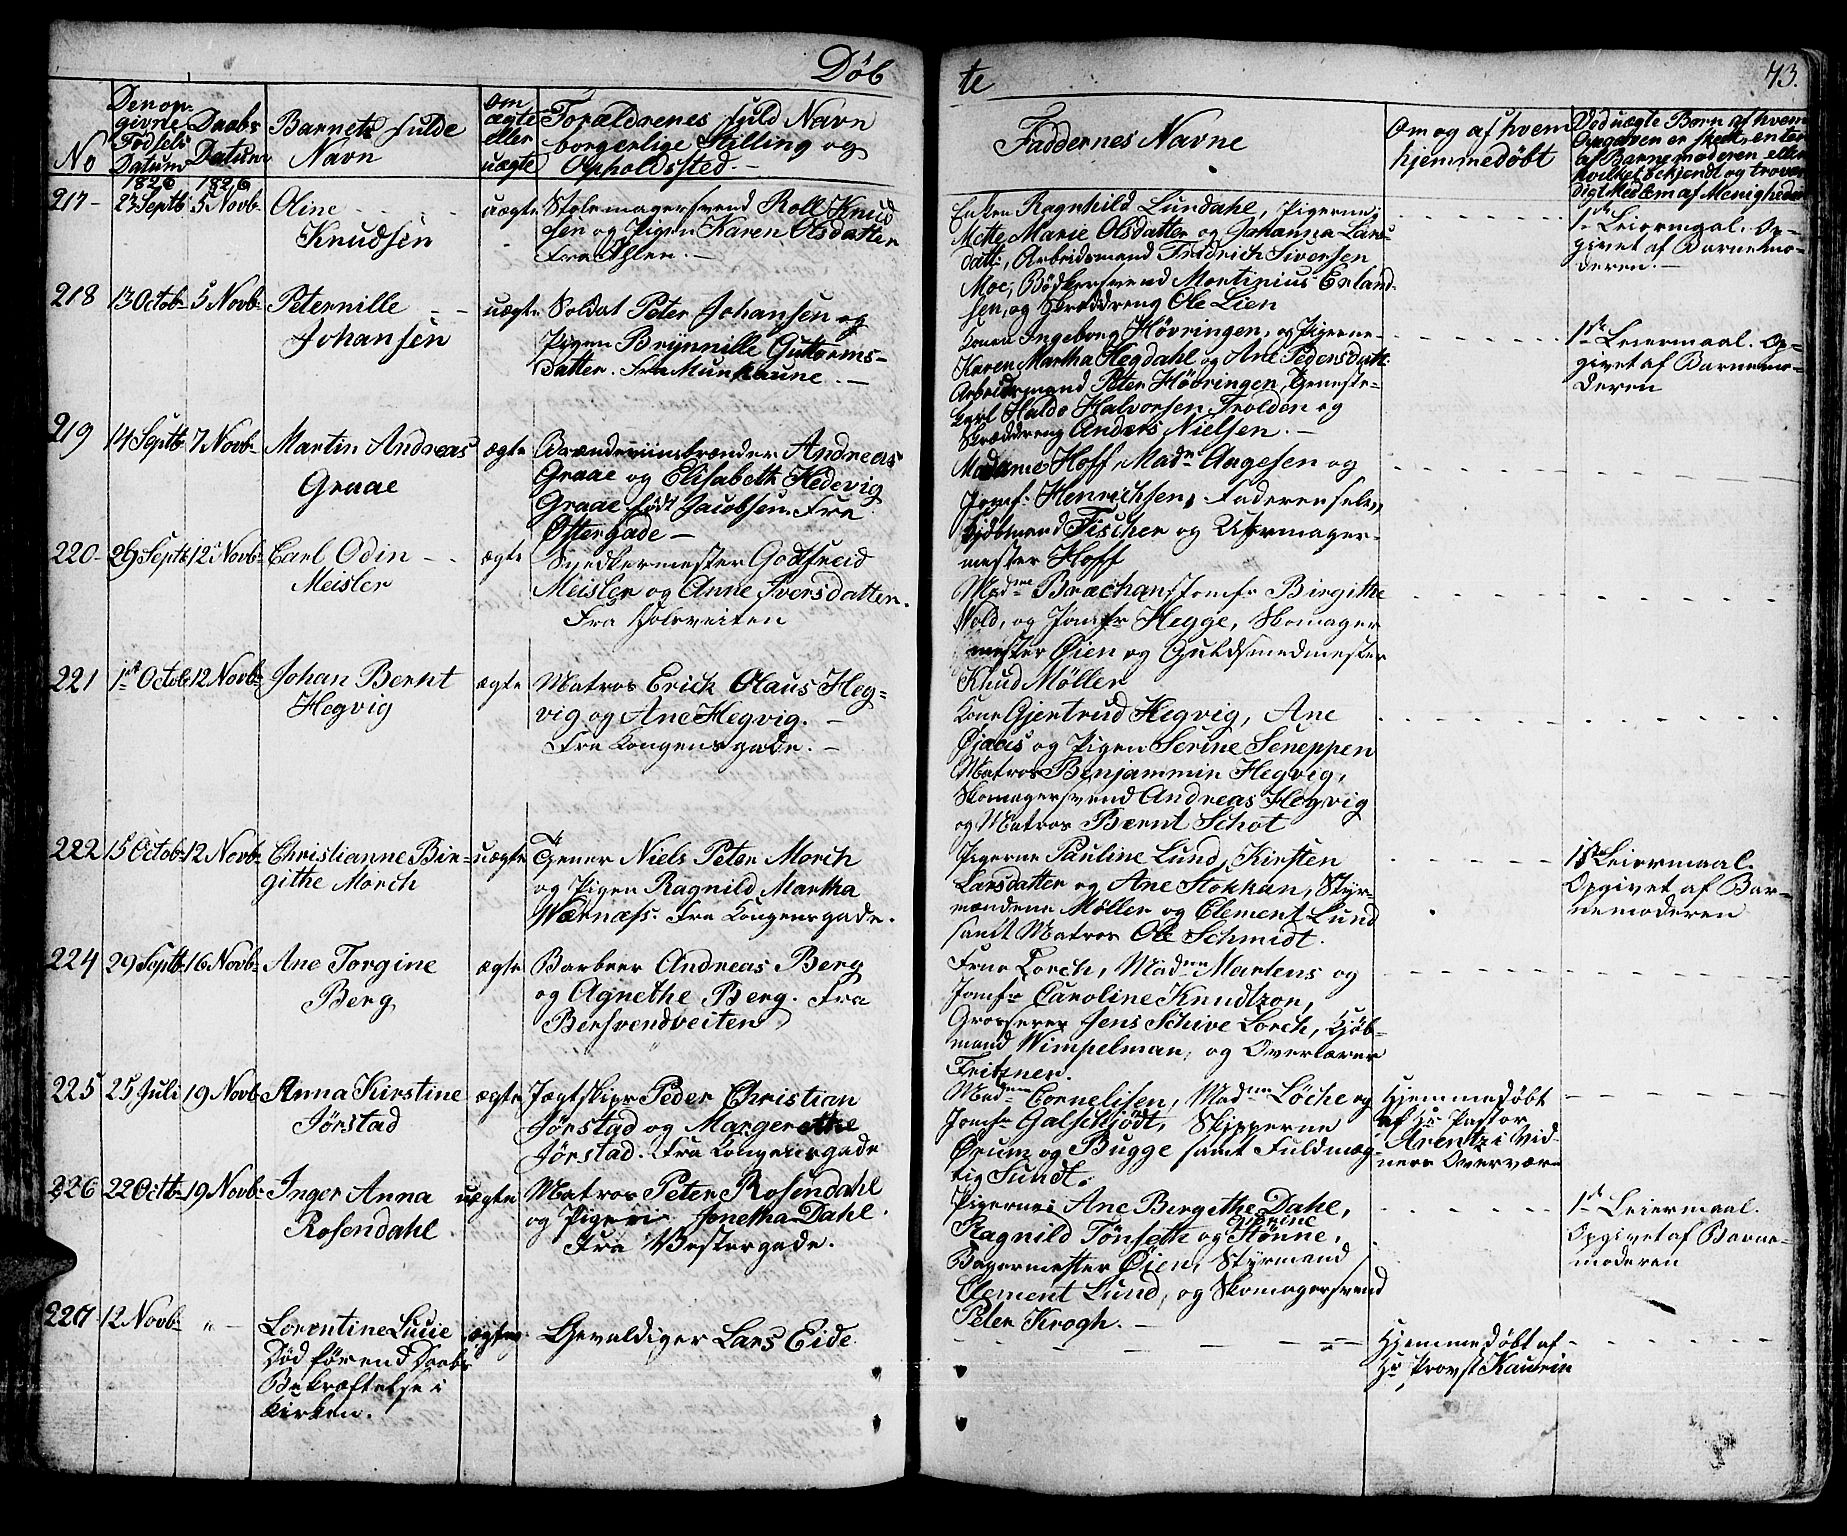 Døb
te
73.
No
Den op-
givne
Fødsels
Datum
Daabs
Datum
Barnets fulde
Navn
om
ægte
eller
uægte
Forældrenes fuld Navn
borgerlige Stilling og
Opholdssted.
Faddernes Navne
Om og af hvem
hjemmedøbt
Ved uægte Børn af hvem
Opgaven er skeet, enten
af Barnemoderen eller
hvilket bekjendt og trovær
digt Medlem af Menigheden
1826 1826
217- 23 Septb 5 Novb- Oline
Knudsen
uægte Stolemagersvend Roll Knud
sen og Pigen Karen Olsdatter
Fra Ihlen.
Enken Ragnhild Lundahl, Pigerne:
Mette Marie Olsdatter og Johanna Lars-
datt:, Arbeidsmand Fridrich Siversen
Moe, Bødkersvend Mortinius Erland-
sen, og Skræddreng Ole Lien
1ste Leiermaal. Op-
givet af Barnemo-
deren.
218 13 Octob- 5 Novb- Peternille
Johansen
uægte Soldat Peter Johansen og
Pigen Brynnille Guttorms-
datter. Fra Munkaune.
Konen Ingeborg Høvringen, og Pigerne
Karen Martha Hegdahl og Ane Pedersdatt
Arbeidsmand Peter Høvringen, Tjeneste-
karl Haldo Halvorsen Trolden og
Skræddreng Anders Nielsen.
1ste Leiermaal. Op-
givet af Barnemo-
deren
219 14 Septb 7 Novb- Martin Andreas
Graae
ægte Brændeviinsbrænder Andreas
Graae og Elisabeth Hedevig
Graae født Jacobsen. Fra
Østergade
Madame Hoff, Madm Aagesen og
Jomf: Henrichsen, Faderen selv,
Kjøbmand Fischer og Uhrmager-
mester Hoff
220- 29 Septb 12 Novb- Carl Odin
Meisler
ægte Snedkermester Godtfreid
Meisler og Anne Iversdatter.
Fra Holsveiten
Madme Brachan, Jomfr Birgithe
Vold, og Jomfr Hegge, Skomager
mester Øien og Guldsmedmester
Knud Møller
221 1ste Octob 12 Novb- Johan Bernt
Hegvig
ægte Matros Erick Olaus Heg-
vig og Ane Hegvig.
Fra Kongensgade.
Kone Gjertrud Hegvig, Ane
Øjaas og Pigen Serine Seneppen
Matros Benjammin Hegvig,
Skomagersvend Andreas Hegvig
og Matros Bernt Schot
222 15 Octob 12 Novb- Christianne Bir-
githe Morch
uægte Tjener Niels Peter Morch
og Pigen Ragnild Martha
Wærnæss. Fra Kongensgade.
Pigerne Pauline Lund, Kirsten
Larsdatter og Ane Stokkan, Styr-
mændene Møller og Clement Lund
samt Matros Ole Schmidt.
1ste Leiermaal.
Opgivet af Bar-
nemoderen
224 29 Septb 16 Novb- Ane Torgine
Berg
ægte Barbeer Andreas Berg
og Agnethe Berg. Fra
Bersvendveiten
Frue Lorch, Madme Martens og
Jomfr Caroline Knudtzon,
Grosserer Jens Schive Lorch, Kjøb-
mand Wimpelman, og Overlærer
Fritzner.
225 25 Juli 19 Novb- Anna Kirstine
Jørstad
ægte Jægtskipr Peder Christian
Jørstad og Margerethe
Jørstad. Fra Kongensgade
Madme Cornelisen, Madme Løche og
Jomfr Galschjödt, Skipperne
Ørum og Bugge samt Fuldmæg-
tig Sundt.
Hjemmedøbt
af Hr Pastor
Arentz i Vid-
ners Overvær
226 22 Octb- 19 Novb- Inger Anna
Rosendahl
uægte Matros Peter Rosendahl
og Pigen Jonetha Dahl.
Fra Vestergade.
Pigerne: Ane Bergethe Dahl,
Ragnild Tønseth og Hønne,
Bagermester Øien, Styrmand
Clement Lund, og Skomagersvend
Peter Krogh.
1ste Leiermaal.
Opgivet af Barne-
moderen
227 12 Novb- " Lorentine Lucie
Død før end Daabs
Bekræftelse i
Kirken.
ægte Gevaldiger Lars Eide
Hjemmedøbt af
Hr Provst Kaurin